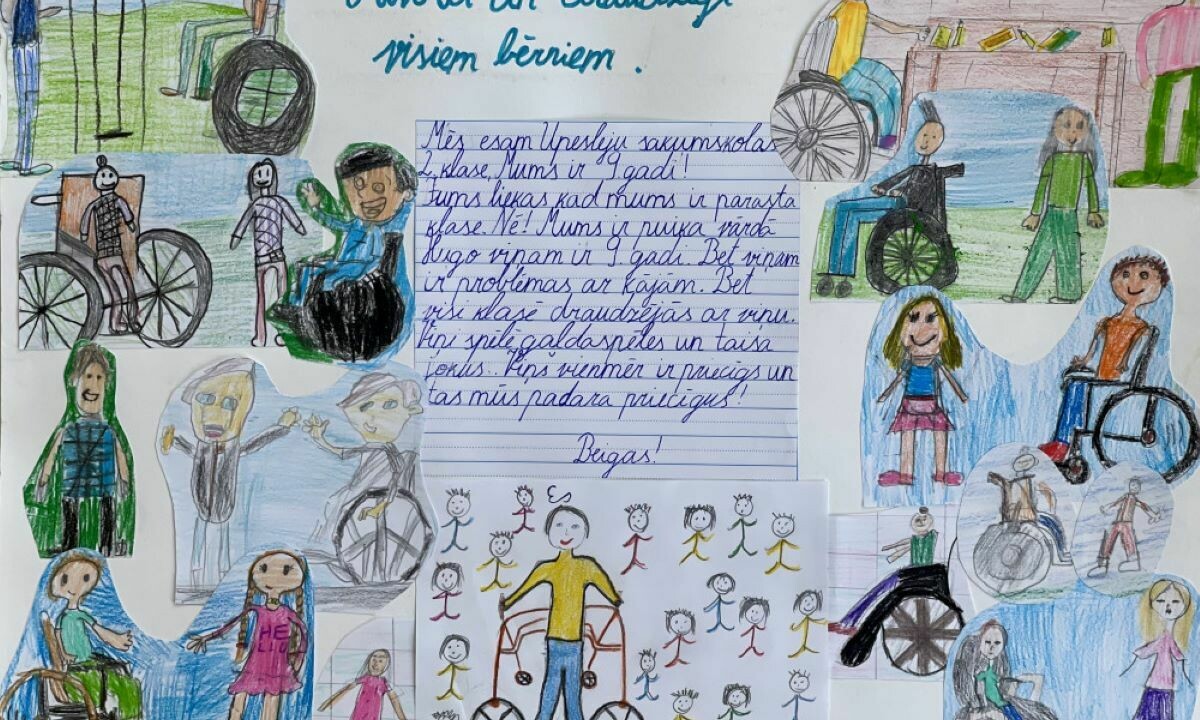 visiem bērniem.
Mēs esam Upesleju sakumskolas
2. klase. Mums ir 9. gadi!
Jums liekas kad mums ir parasta
klase. Nē! Mums ir puika vārdā
Hugo viņam ir 9. gadi. Bet viņam
ir problēmas ar kājām. Bet
visi klasē draudzējās ar viņu.
Viņi spēlē galdaspēles un taisa
jokus.. Viņš vienmēr ir priecīgs un
tas mūs padara priecīgus!
Beigas!
Es
HE
LLU